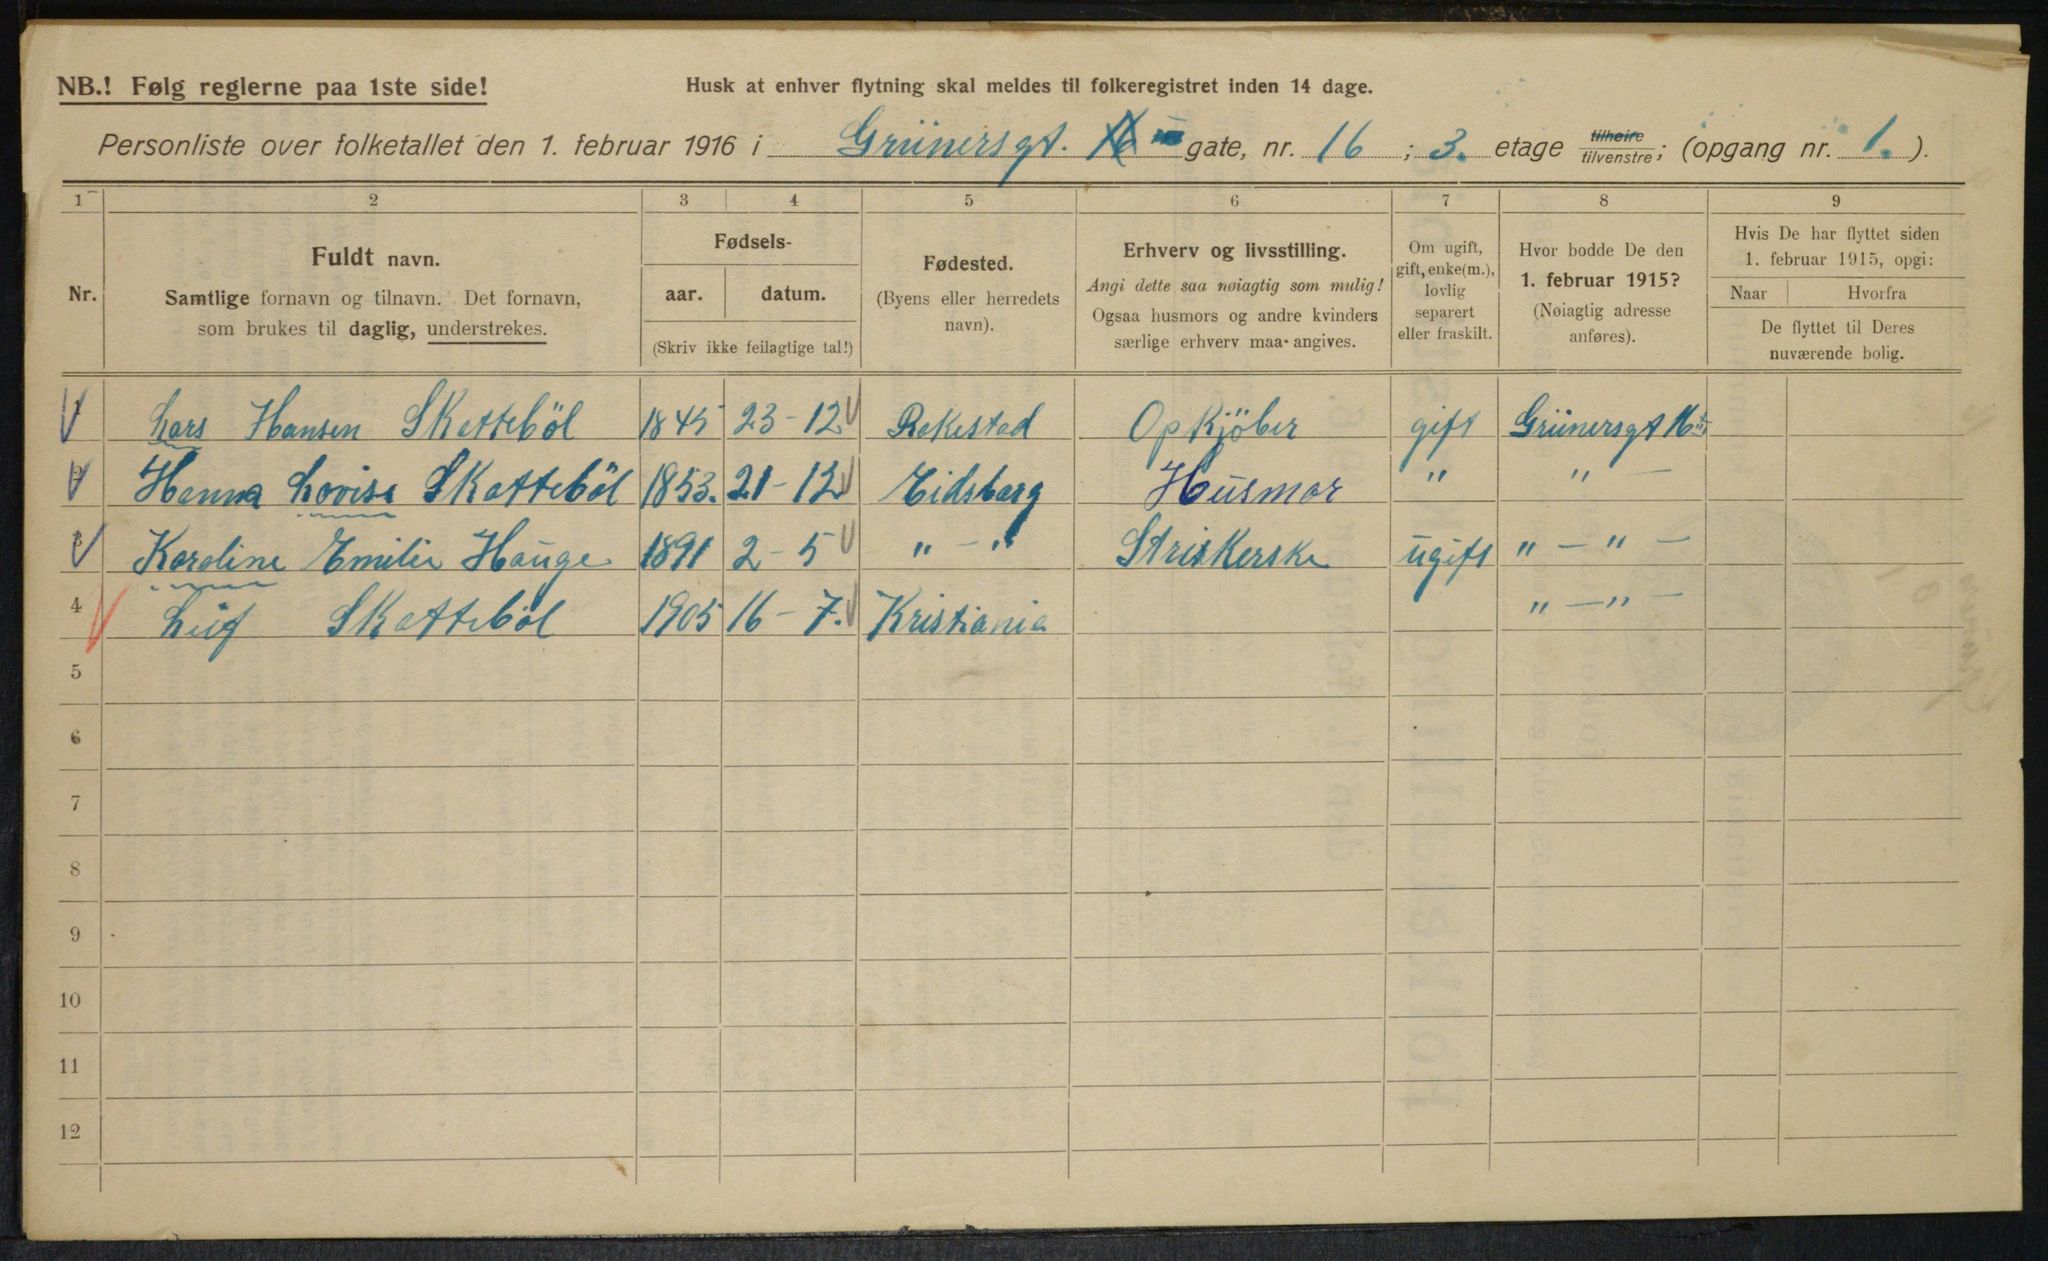 NB.! Følg reglerne paa 1ste side! Husk at enhver flytning skal meldes til folkeregistret inden 14 dage.
Personliste over folketallet den 1. februar 1916 i Grünersgt. 16 gate, nr. 16; 3. etage tilhøire/tilvenstre; (opgang nr. 1.).
1 2 3 4 5 6 7 8 9
Nr.
Fuldt navn.
Samtlige fornavn og tilnavn. Det fornavn,
som brukes til daglig, understrekes.
Fødsels-
aar. datum.
(Skriv ikke feilagtige tal!)
Fødested.
(Byens eller herredets
navn).
Erhverv og livsstilling.
Angi dette saa nøiagtig som mulig!
Ogsaa husmors og andre kvinders
særlige erhverv maa angives.
Om ugift,
gift, enke(m.),
lovlig
separert
eller fraskilt.
Hvor bodde De den
1. februar 1915?
(Nøiagtig adresse
anføres).
Hvis De har flyttet siden
1. februar 1915, opgi:
Naar Hvorfra
De flyttet til Deres
nuværende bolig.
1 Lars Hansen Skatteböl 1845 23-12 Rakestad Opkjöber gift Grünersgt 16
2 Hanna Lovise Skatteböl 1853. 21-12 Eidsberg Husmor " " —
3 Karoline Emilie Hauge 1891 2-5 " — " Striskerske ugift " — " —
4 Leif Skattebøl 1905 16-7. Kristiania " — " —
5
6
7
8
9
10
11
12